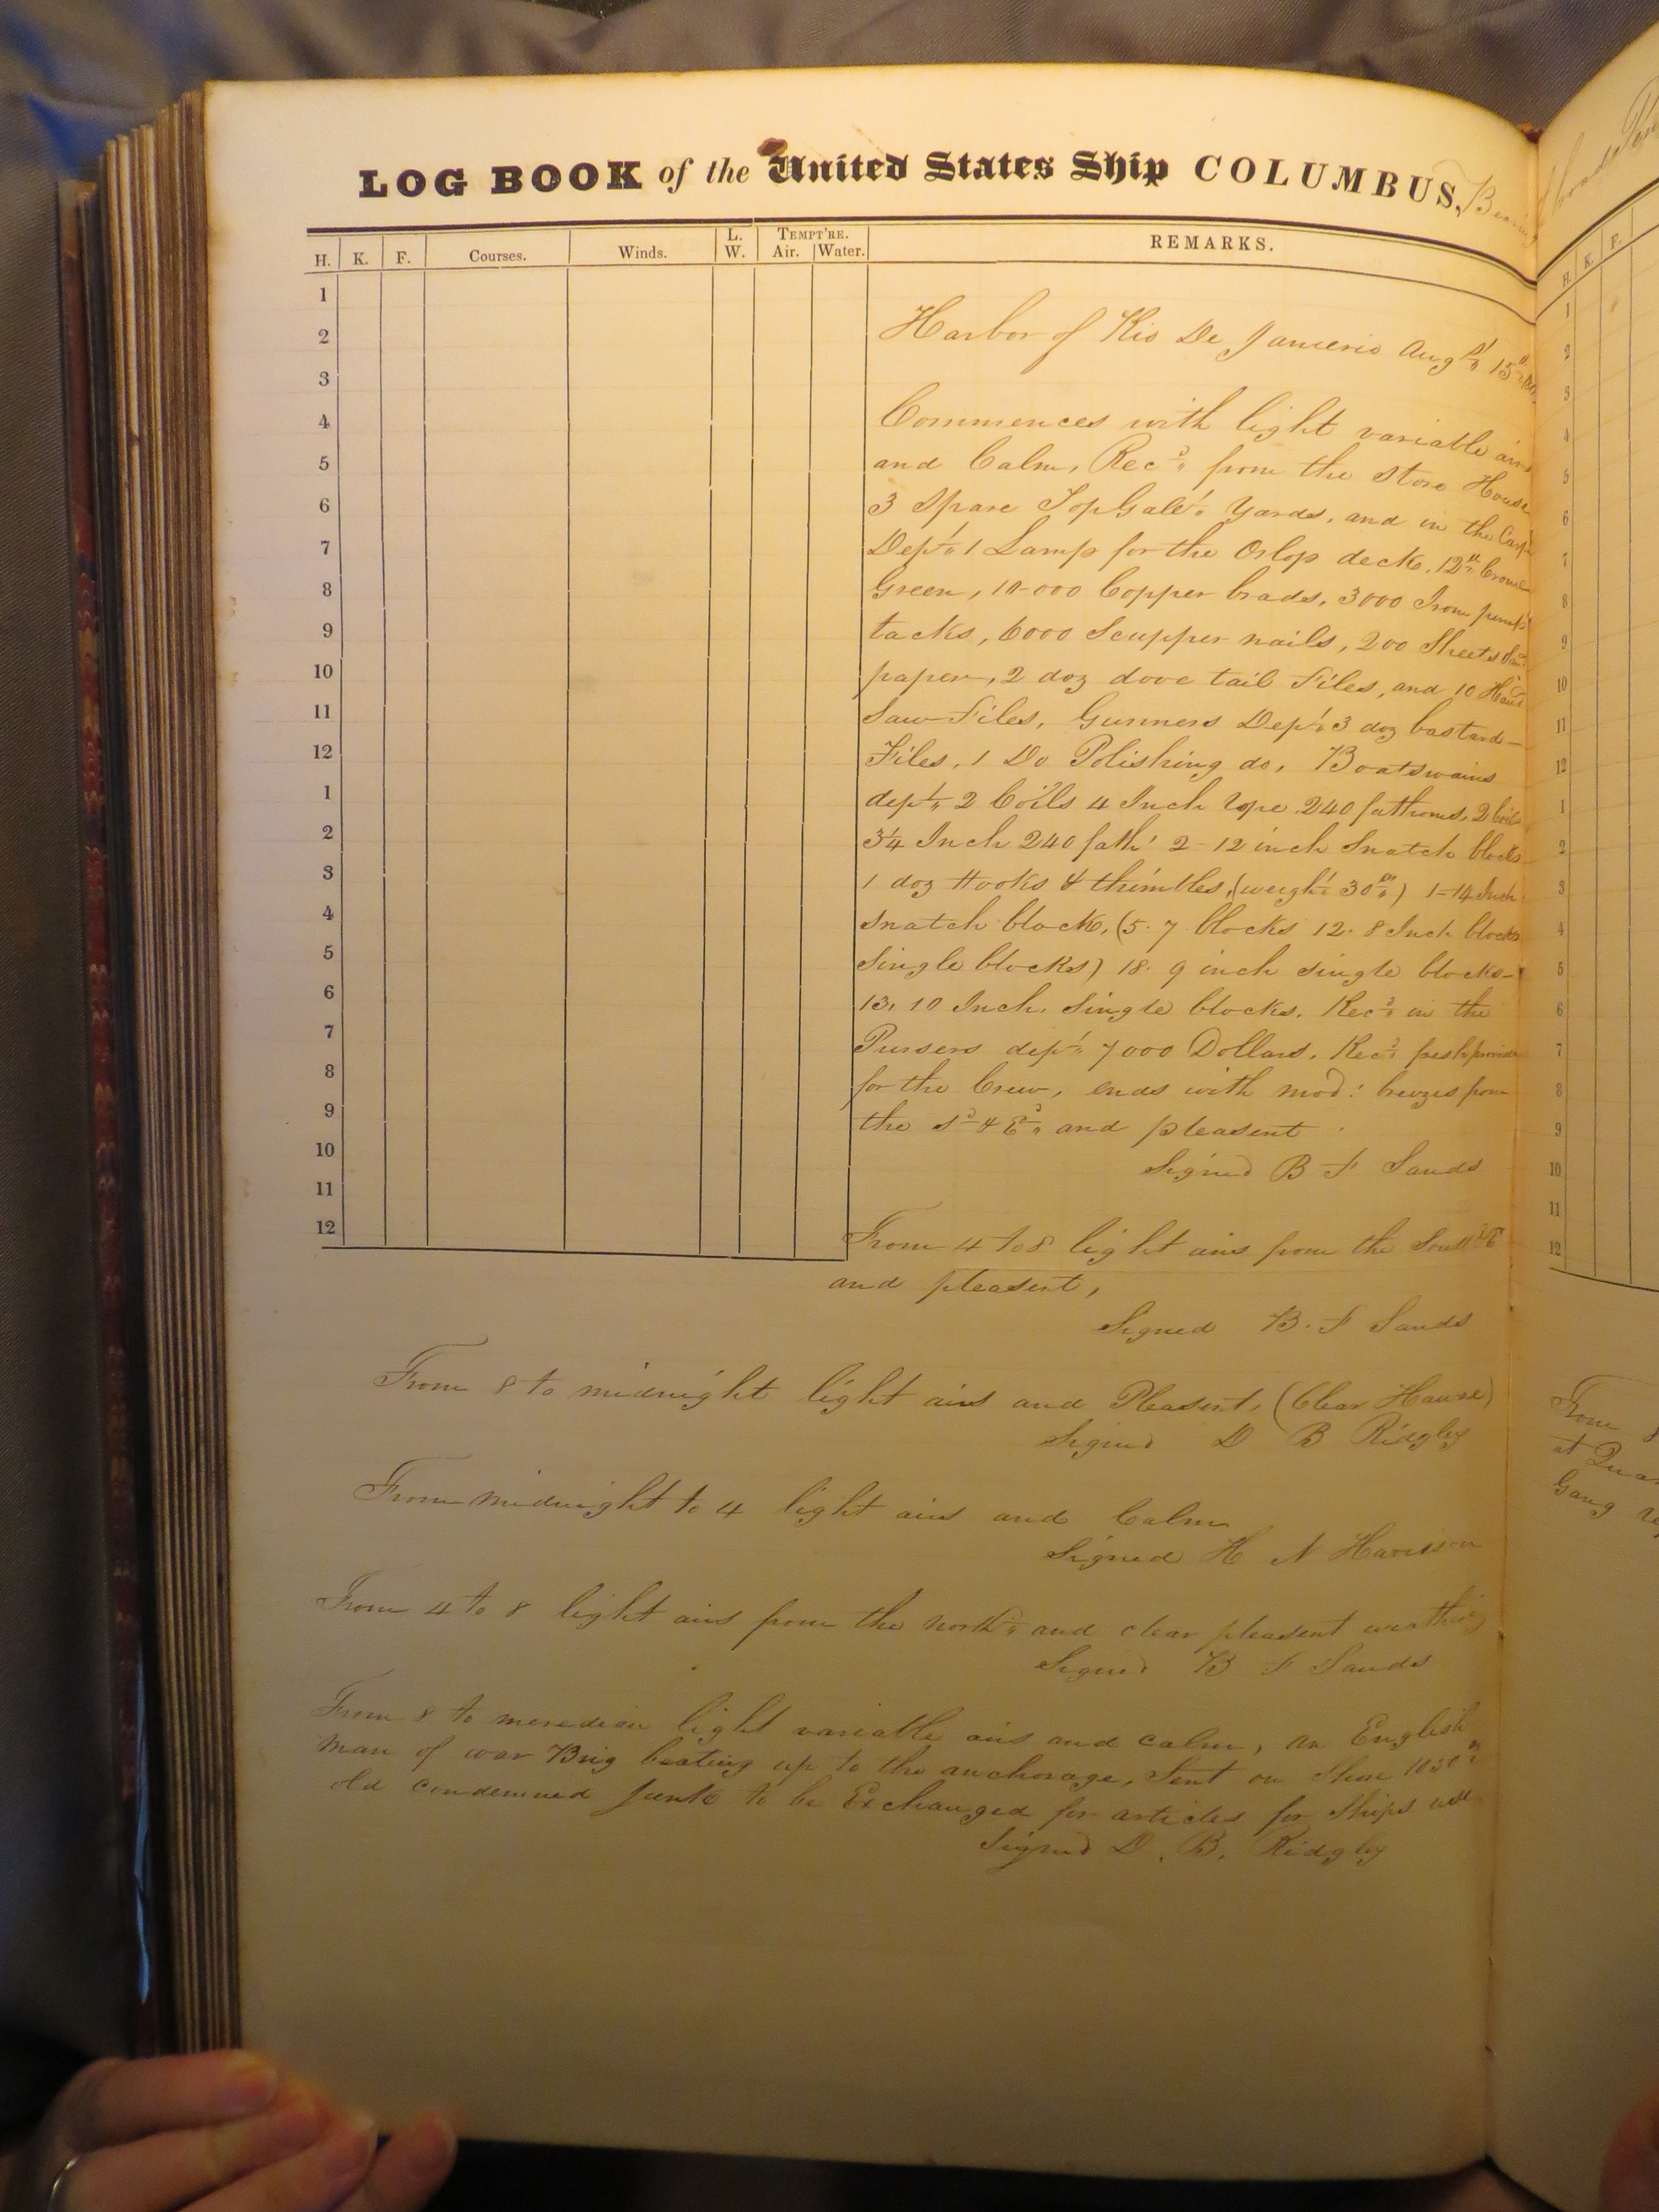 LOG BOOK of the United States Ship COLUMBUS,
H. K. F. Courses. Winds. L. W. TEMPT'RE. Air. Water. REMARKS.
1
2
3
4
5
6
7
8
9
10
11
12
1
2
3
4
5
6
7
8
9
10
11
12
Harbor of Rio De Janierio Augst 15th
Commences with light variable airs
and Calm, Recd from the Store House
3 Spare TopGalt Yards, and in the Carp
Dept 1 Lamp for the Orlop deck. 12 Crome
Green, 10-000 Copper brads, 3000 Iron pump
tacks, 6000 Scupper nails, 200 Sheets Sand
paper, 2 doz dove tail Files, and 10 Hand
Saw Files, Gunners Dept 3 doz bastard
Files, 1 Do Polishing do, Boatswains
dept 2 Coils 4 Inch rope 240 fathoms, 2 Coils
3¼ Inch 240 fath 2-12 inch Snatch blocks
1 doz Hooks & thimbles, (weight 30) 1-14 Inch
Snatch block, (5. 7 blocks 12. 8 Inch blocks
Single blocks) 18. 9 inch single blocks-
13, 10 Inch. Single blocks. Recd in the
Pursers dept 7000 Dollars. Recd fresh
for the Crew, ends with mod: breezes from
the Sd & Ed and pleasent
Signed B F Sands
From 4 to 8 light airs from the
and pleasent,
Signed B. F Sands
From 8 to midnight light airs and Pleasent, (Clear Hawse)
Signed D B Ridgley
From midnight to 4 light airs and Calm
Signed H N Harrison
From 4 to 8 light airs from the northd and clear pleasent weather
Signed B F Sands
From 8 to meredian light variable airs and calm, an English
man of war Brig beating up to the anchorage, Sent on Shore 1030
old condemned Junk to be Exchanged for articles for Ships use
Signed D. B. Ridgley
H. K. F.
1
2
3
4
5
6
7
8
9
10
11
12
1
2
3
4
5
6
7
8
9
10
11
12
From 8
at
Gang